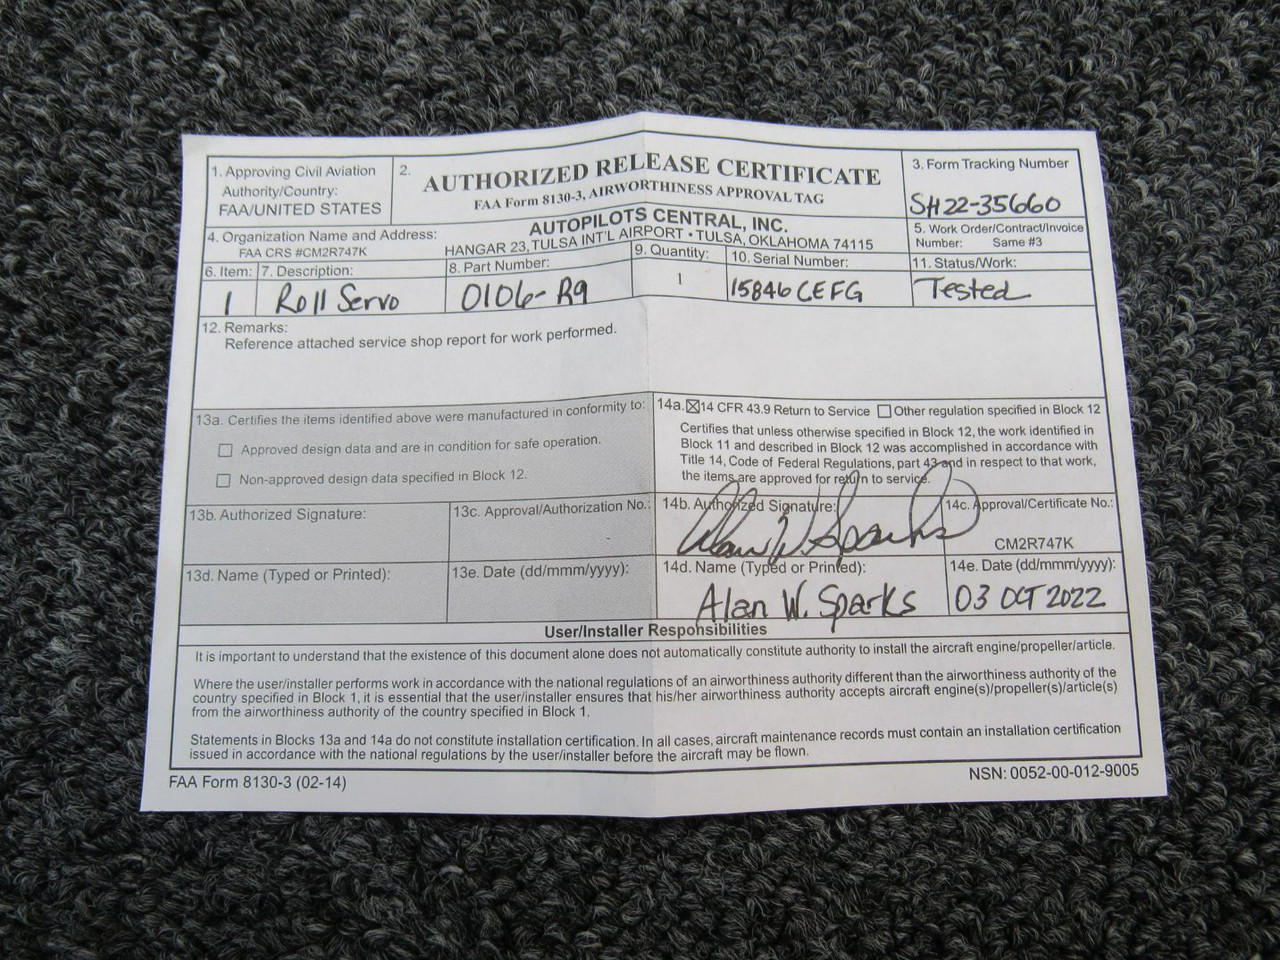 1. Approving Civil Aviation
Authority/Country:
FAA/UNITED STATES
2.
AUTHORIZED RELEASE CERTIFICATE
FAA Form 8130-3, AIRWORTHINESS APPROVAL TAG
3. Form Tracking Number
SH22-35660
4. Organization Name and Address:
FAA CRS #CM2R747K
AUTOPILOTS CENTRAL, INC.
HANGAR 23, TULSA INT'L AIRPORT • TULSA, OKLAHOMA 74115
5. Work Order/Contract/Invoice
Number: Same #3
6. Item:
1
7. Description:
Roll Servo
8. Part Number:
0106-R9
9. Quantity:
1
10. Serial Number:
15846CEFG
11. Status/Work:
Tested
12. Remarks:
Reference attached service shop report for work performed.
13a. Certifies the items identified above were manufactured in conformity to:
Approved design data and are in condition for safe operation.
Non-approved design data specified in Block 12.
14a. ☒ 14 CFR 43.9 Return to Service ☐ Other regulation specified in Block 12
Certifies that unless otherwise specified in Block 12, the work identified in
Block 11 and described in Block 12 was accomplished in accordance with
Title 14, Code of Federal Regulations, part 43 and in respect to that work,
the items are approved for return to service.
13b. Authorized Signature:
13c. Approval/Authorization No.:
14b. Authorized Signature:
Alan W. Sparks
14c. Approval/Certificate No.:
CM2R747K
13d. Name (Typed or Printed):
13e. Date (dd/mmm/yyyy):
14d. Name (Typed or Printed):
Alan W. Sparks
14e. Date (dd/mmm/yyyy):
03 OCT 2022
User/Installer Responsibilities
It is important to understand that the existence of this document alone does not automatically constitute authority to install the aircraft engine/propeller/article.
Where the user/installer performs work in accordance with the national regulations of an airworthiness authority different than the airworthiness authority of the
country specified in Block 1, it is essential that the user/installer ensures that his/her airworthiness authority accepts aircraft engine(s)/propeller(s)/article(s)
from the airworthiness authority of the country specified in Block 1.
Statements in Blocks 13a and 14a do not constitute installation certification. In all cases, aircraft maintenance records must contain an installation certification
issued in accordance with the national regulations by the user/installer before the aircraft may be flown.
FAA Form 8130-3 (02-14)
NSN: 0052-00-012-9005